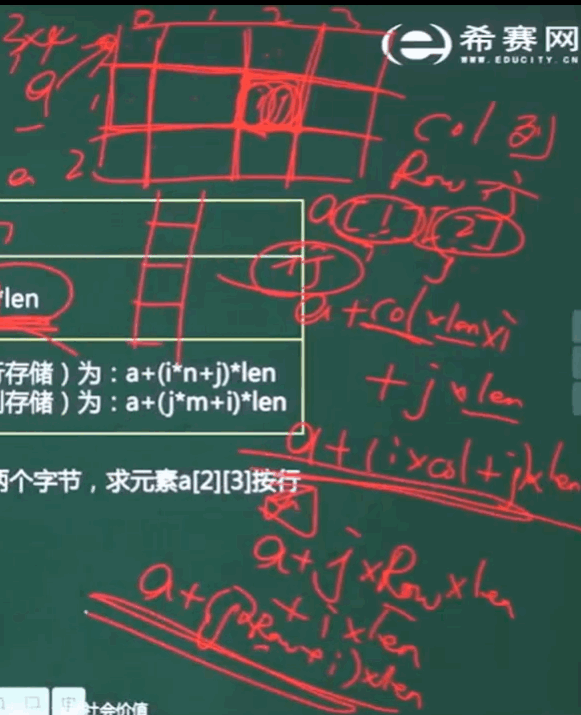 希赛网
WWW.EDUCITY.CN
0 1 2 3
3×4
a
1
2
a
col 列
Row 行
a[1][2]
i j
*len
行
a+col×len×i
+j×len
存储）为：a+(i*n+j)*len
存储）为：a+(j*m+i)*len
a+(i×col+j)×len
两个字节，求元素a[2][3]按行
a+j×Row×len
+i×len
a+(j×Row+i)×len
社会价值